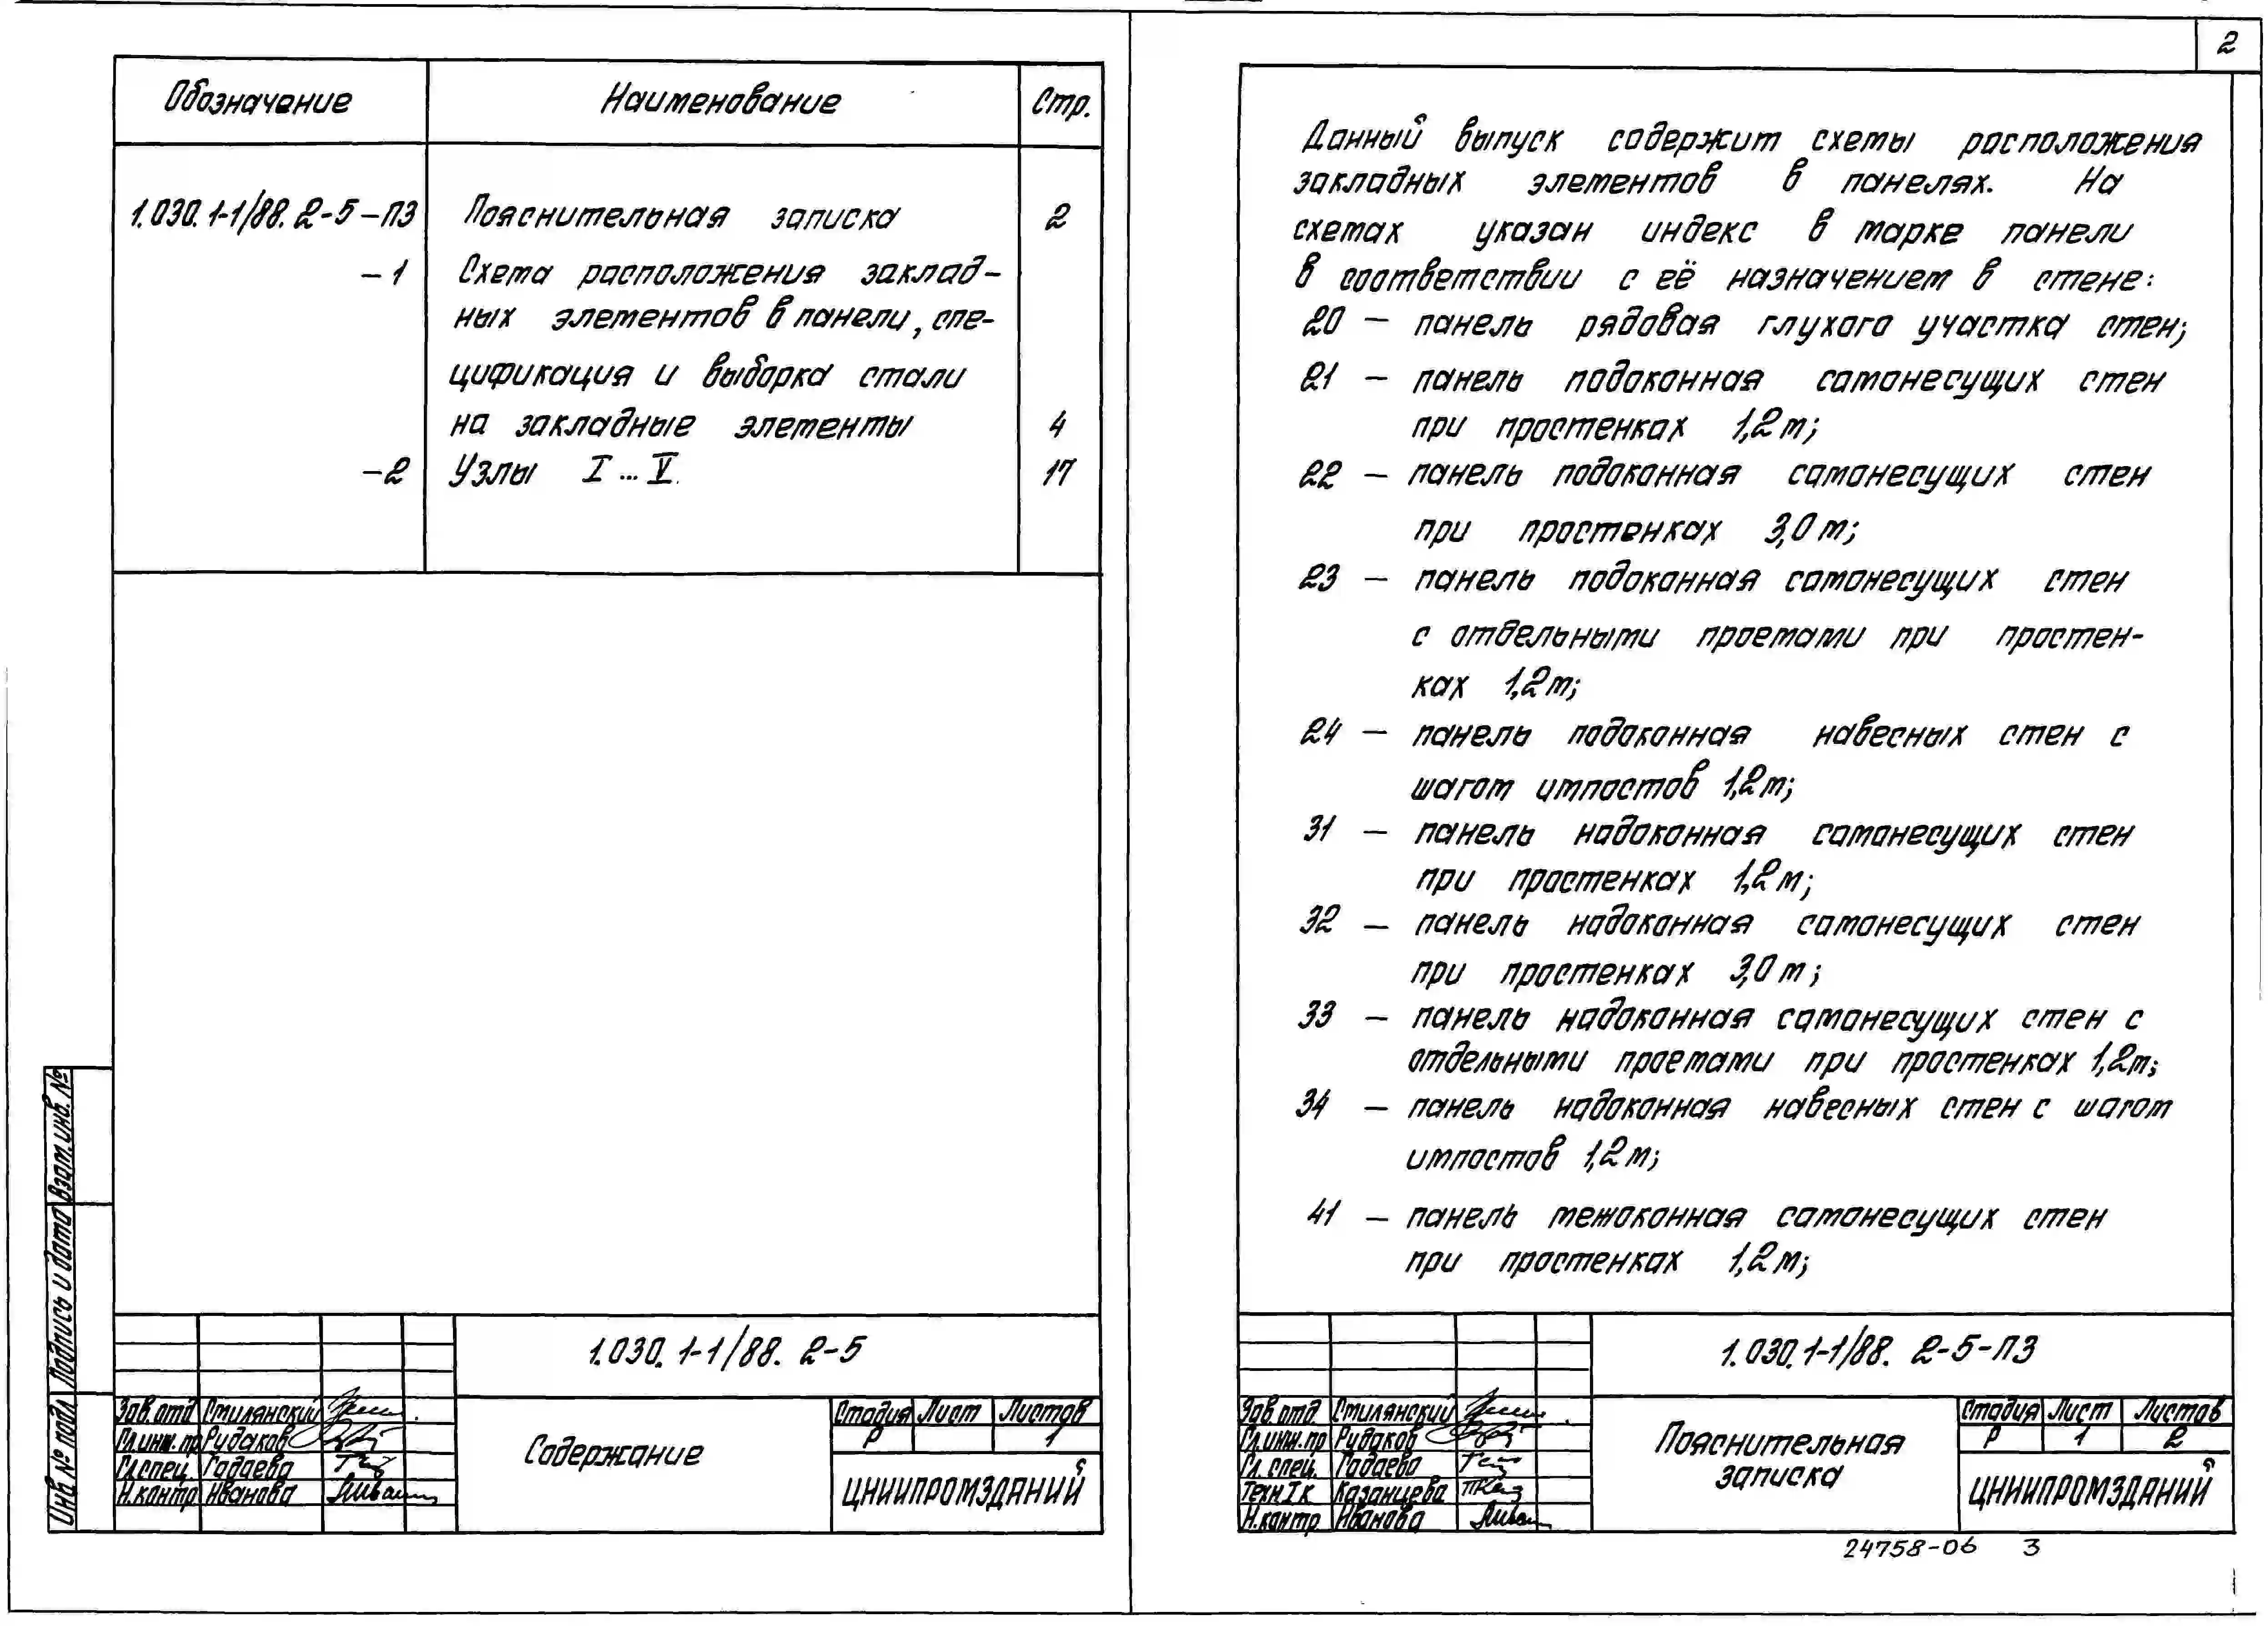 Обозначение Наименование Стр.
1.030.1-1/88.2-5-ПЗ Пояснительная записка 2
-1 Схема расположения заклад-
ных элементов в панели, спе-
цификация и выборка стали
на закладные элементы 4
-2 Узлы I ... V. 17
Взам.инв.№
Подпись и дата
Инв № подл
1.030.1-1/88. 2-5
Зав.отд Смилянский
Гл.инж.пр Рудаков
Гл.спец. Гадаева
Н.контр Иванова
Содержание
Стадия Лист Листов
Р 1
ЦНИИПРОМЗДАНИЙ
2
Данный выпуск содержит схемы расположения
закладных элементов в панелях. На
схемах указан индекс в марке панели
в соответствии с её назначением в стене:
20 — панель рядовая глухого участка стен;
21 — панель подоконная самонесущих стен
при простенках 1,2м;
22 — панель подоконная самонесущих стен
при простенках 3,0м;
23 — панель подоконная самонесущих стен
с отдельными проемами при простен-
ках 1,2м;
24 — панель подоконная навесных стен с
шагом импостов 1,2м;
31 — панель надоконная самонесущих стен
при простенках 1,2м;
32 — панель надоконная самонесущих стен
при простенках 3,0м;
33 — панель надоконная самонесущих стен с
отдельными проемами при простенках 1,2м;
34 — панель надоконная навесных стен с шагом
импостов 1,2м;
41 — панель межоконная самонесущих стен
при простенках 1,2м;
1.030.1-1/88. 2-5-ПЗ
Зав.отд Смилянский
Гл.инж.пр Рудаков
Гл. спец. Гадаева
Техн I к Казанцева
Н.контр Иванова
Пояснительная
записка
Стадия Лист Листов
Р 1 2
ЦНИИПРОМЗДАНИЙ
24758-06 3